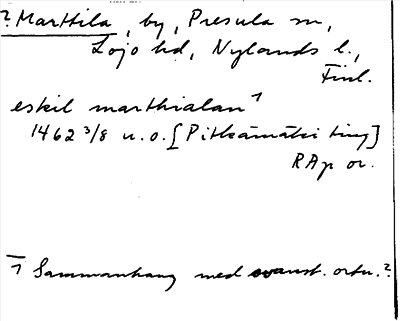 ? Marttila, by, Presula sn,
Lojo hd, Nylands l.,
Finl.
eskil marthialan¹
1462 3/8 u.o. [Pitkämäki ting]
RAp or.
1 Sammanhang med ovanst. ortn.?